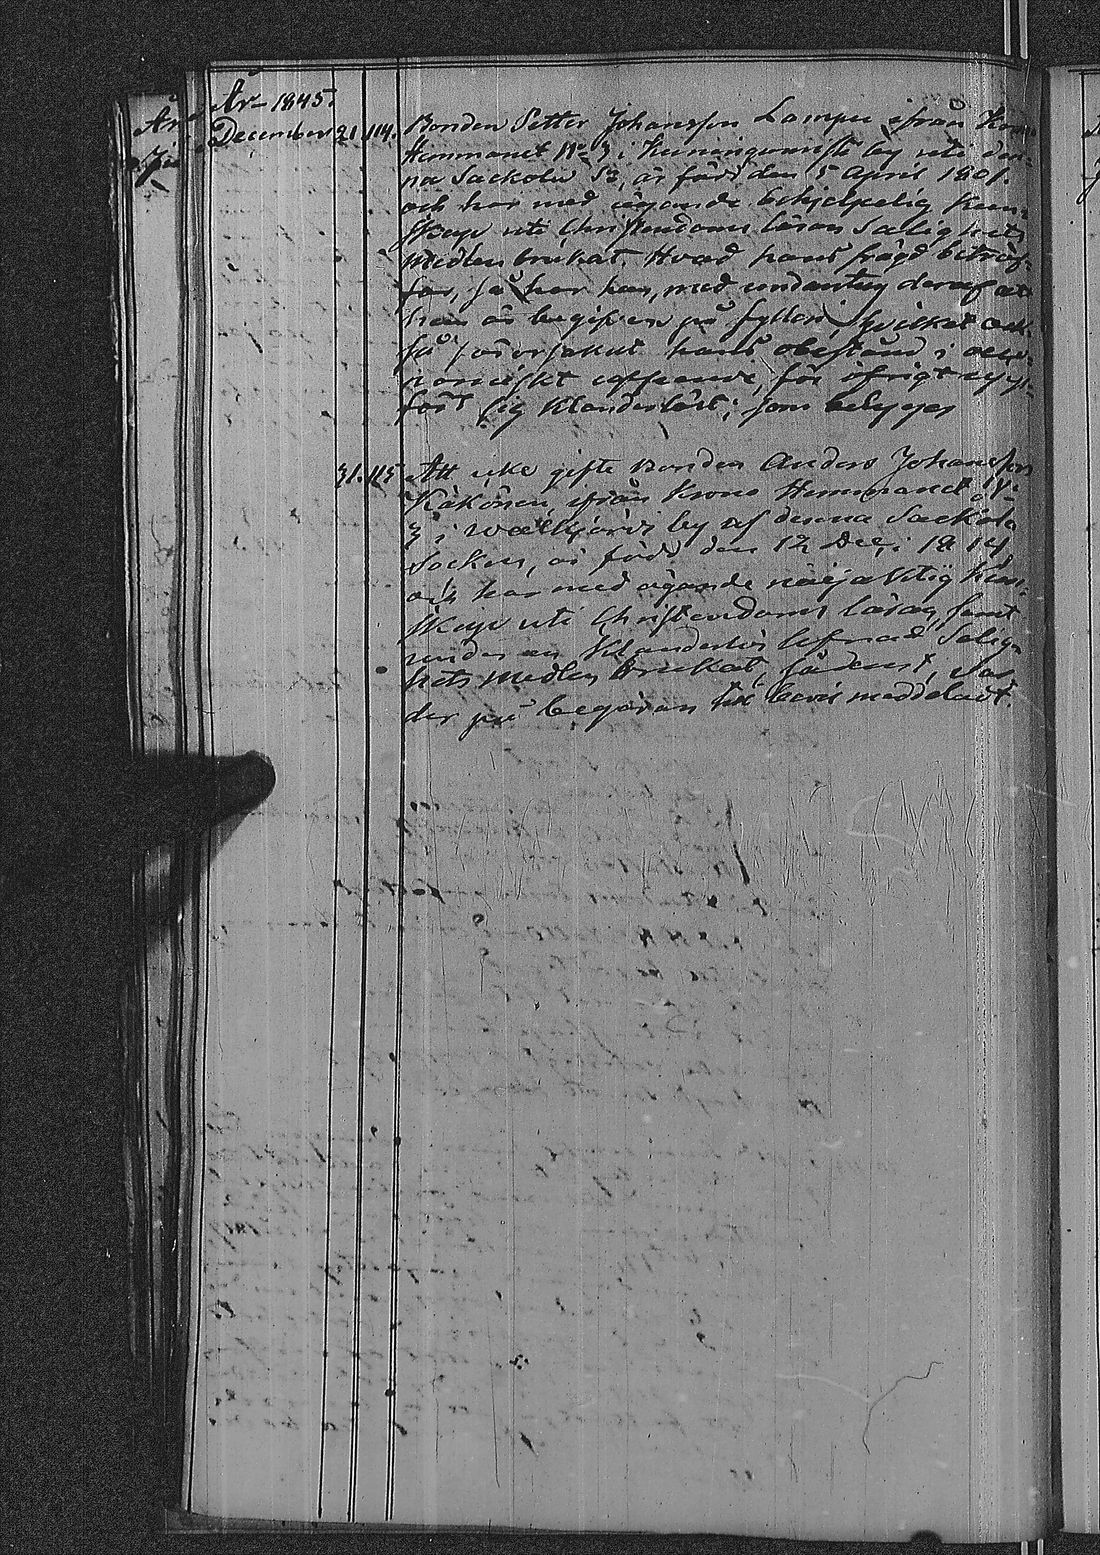 År 1845.
December 21. 114. Bonden Petter Johansson Lampu ifrån Krono
Hemmanet No 3 i by uti den-
na Sackola Sn, är född den 5 April 1801.
och har med ägande behjelpelig kun-
skap uti Christendoms läran Salighets
medlen brukat. Hvad hans frägd beträf-
far, så har han, med undantag deraf att
han är begifven på fylleri hvilket ock-
så förorsakat hans obestånd i oeco-
nomiskt afseende, för öfrigt upp-
fört sig klanderlöst; som betyges
31. 115 Att icke gifte Bonden Anders Johansson
Käkönen ifrån Krono Hemmanet No
3 i Walkjärvi by af denna Sackola
Socken, är född den 12 Dec. 1814,
och har med ägande nöjaktig kun-
skap uti Christendoms läran, samt
under en klanderlös lefnad Salig-
hets medlen brukat, sådant, var-
der på begäran till bevis meddeladt.